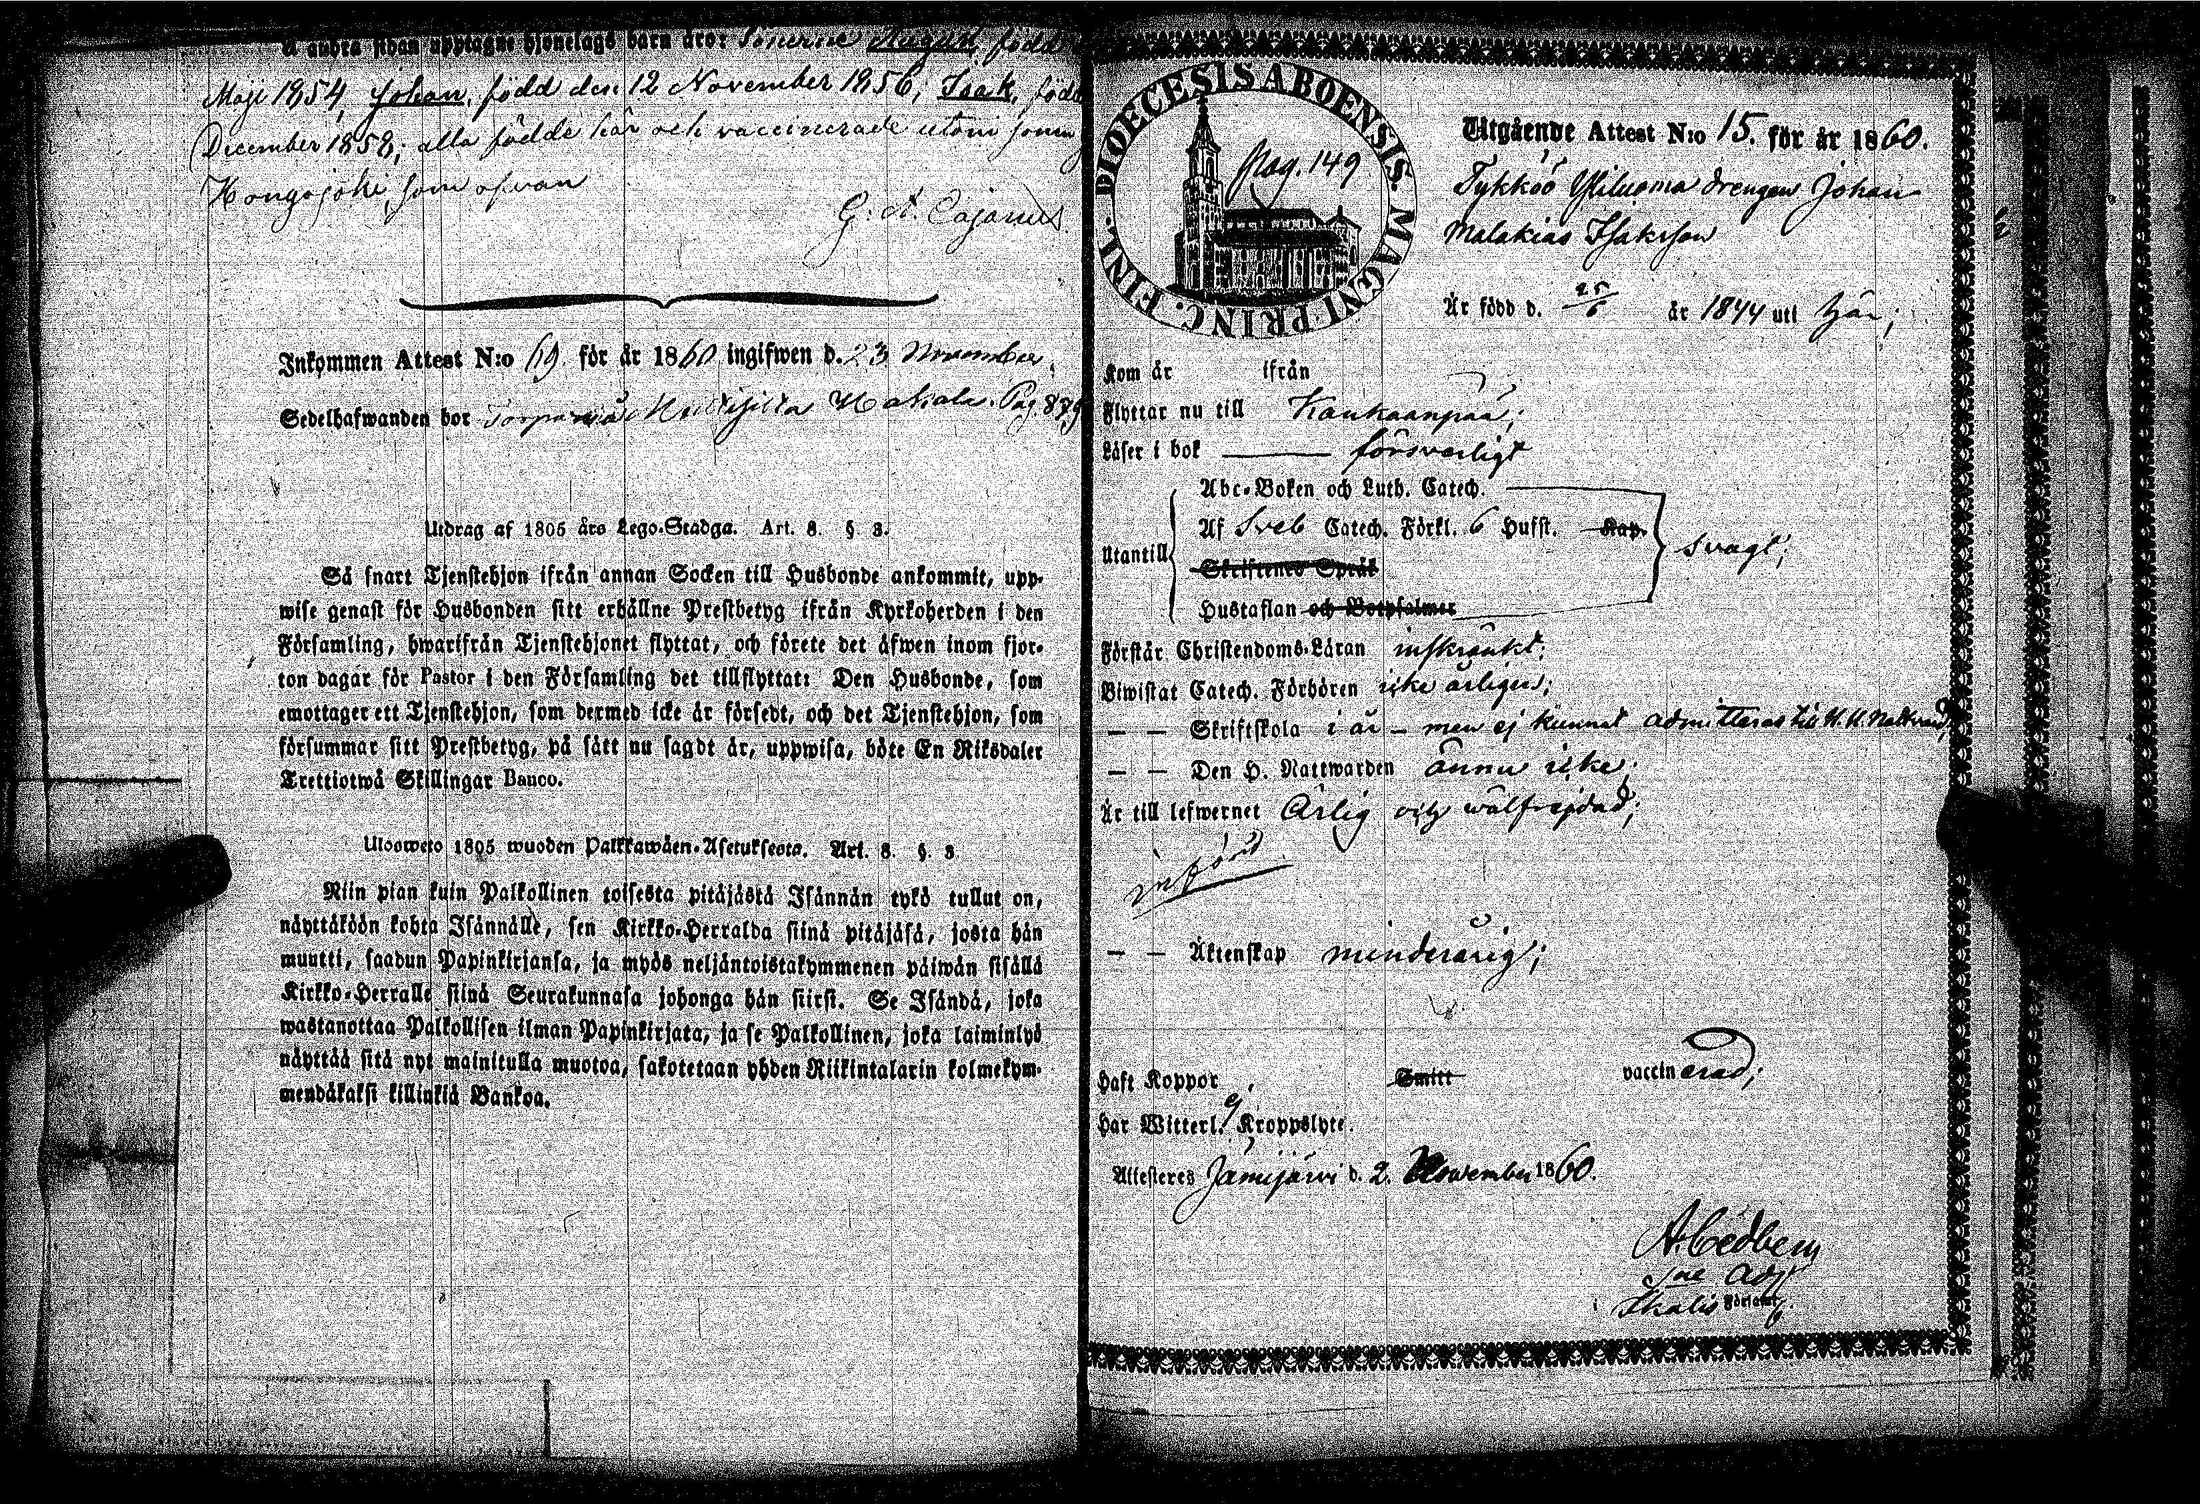 å andra sidan upptagne hjonelags barn äro: Sönerne August, född
Maji 1854, Johan, född den 12 November 1856, Isak, född
December 1858; alla födde här och vaccinerade utom
Hongojoki, som ofvan
G. A. Cajanus.
Inkommen Attest N:o 69 för år 1860 ingifwen d. 23 November.
Sedelhafwanden bor Pag. 879
Utdrag af 1805 års Lego-Stadga. Art. 8. §. 3.
Så snart Tjenstehjon ifrån annan Socken till Husbonde ankommit, upp-
wise genast för Husbonden sitt erhållne Prestbetyg ifrån Kyrkoherden i den
Församling, hwarifrån Tjenstehjonet flyttat, och förete det äfwen inom fjor-
ton dagar för Pastor i den Församling det tillflyttat: Den Husbonde, som
emottager ett Tjenstehjon, som dermed icke är försedt, och det Tjenstehjon, som
försummar sitt Prestbetyg, på sätt nu sagdt är, uppwisa, böte En Riksdaler
Trettiotwå Skillingar Banco.
Ulosweto 1805 wuoden Palkkawäen-Asetuksesta. Art. 8. §. 3
Niin pian kuin Palkollinen toisesta pitäjästä Isännän tykö tullut on,
näyttäköön kohta Isännälle, sen Kirkko-Herralda siinä pitäjäsä, josta hän
muutti, saadun Papinkirjansa, ja myös neljäntoistakymmenen päiwän sisällä
Kirkko-Herralle siinä Seurakunnasa johonga hän siirsi. Se Isändä, joka
wastanottaa Palkollisen ilman Papinkirjata, ja se Palkollinen, joka laiminlyö
näyttää sitä nyt mainitulla muotoa, sakotetaan yhden Riikintalarin kolmekym-
mendäkaksi killinkiä Bankoa.
DIOECESIS ABOENSIS. MAGNI. PRINC. FINL.
Pag. 149
Utgående Attest N:o 15. för år 1860.
Tykköö Yliluoma drengen Johan
Malakias Isaksson
Är född d. 25/6 år 1844 uti här;
Kom år ifrån
Flyttar nu till Kankaanpää;
Läser i bok försvarligt
Abc-Boken och Luth. Catech.
Utantill Af Sveb Catech. Förkl. 6 Hufst. Kap. svagt;
Skriftenes Språk
Hustaflan och Botpsalmer
Förstår Christendoms-Läran inskränkt;
Biwistat Catech. Förhören icke årligen;
— — Skriftskola i år – men ej kunnat admitteras till H. H. Nattvard;
— — Den H. Nattwarden ännu icke;
Är till lefwernet Ärlig och wälfrejdad;
införd
— — Äktenskap minderårig;
Haft Koppor, Smitt vaccinerad;
Har Witterl. ej Kroppslyte.
Attesteres Jämijärvi d. 2. November 1860.
A. Cedberg
Adj
i Ikalis Församl.